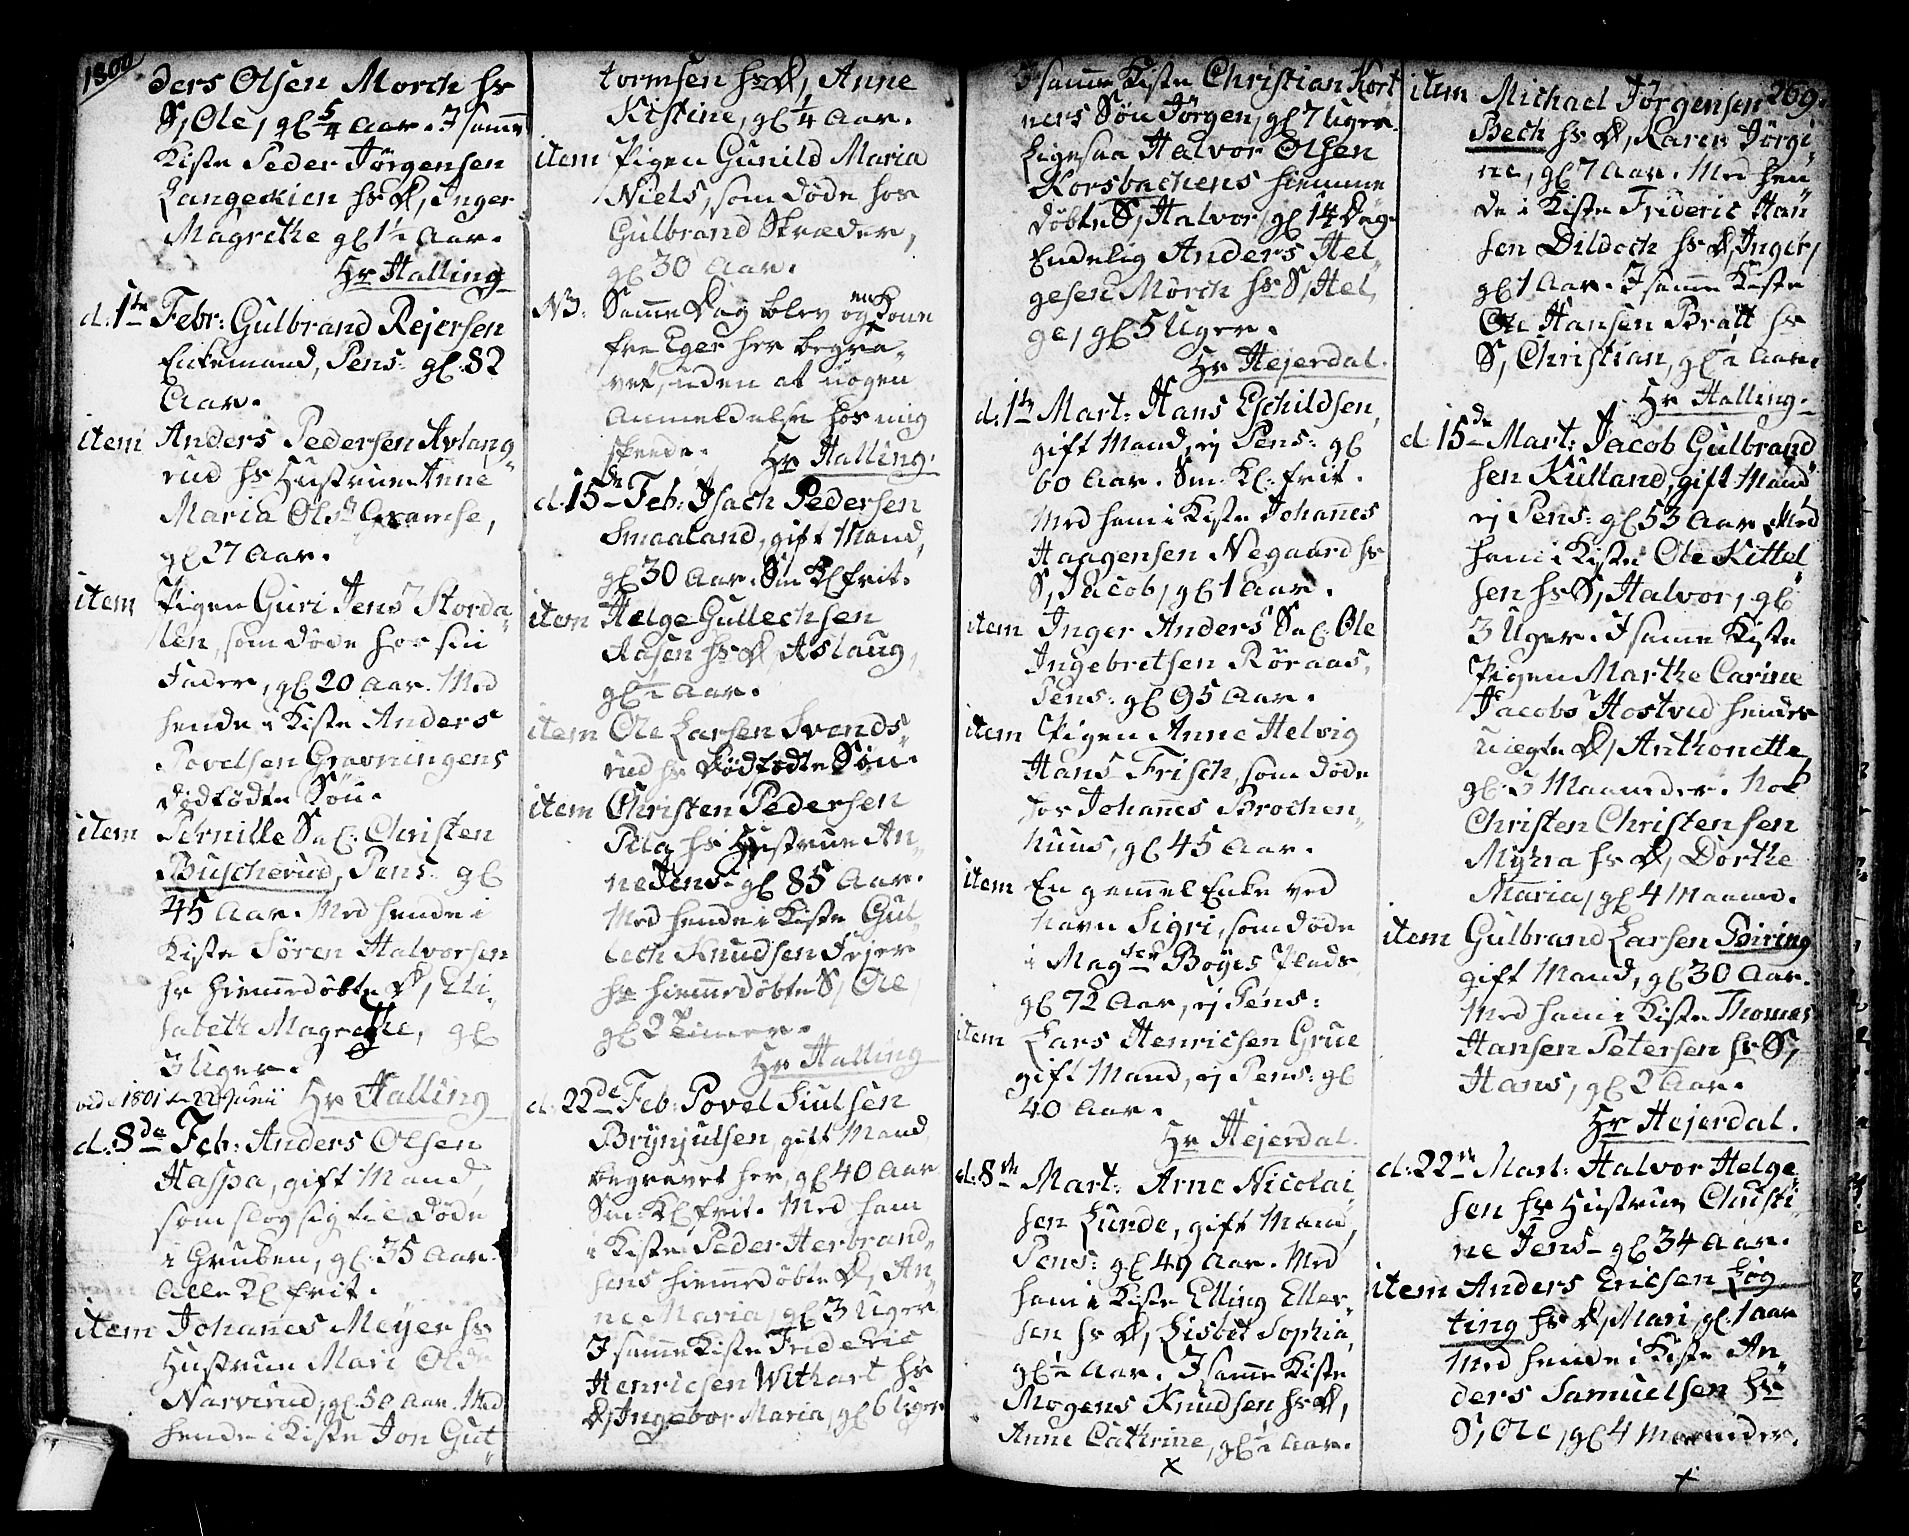 1800
ders Olsen Morch hs
S, Ole, gl 5/4 Aar. I samme
Kiste Peder Jörgensen
Langeckien hs D, Inger
Magrethe gl 1½ Aar.
Hr Halling
d. 1te Febr: Gulbrand Rejersen
Enkemand, Pens: gl. 82
Aar.
item Anders Pedersen Avlang„
rud hs Hustrue Anne
Maria Ols
gl 27 Aar.
item Pigen Guri Jens Storda„
len, som döde hos sin
Fader, gl 20 Aar. Med
hende i Kiste Anders
Povelsen Gravningens
dödfödte Sön.
item Pernille Sal: Christen
Buscherud, Pens: gl
45 Aar. Med hende i
Kiste Sören Halvorsen
hs hiemmedöbte D, Eli„
sabeth Magrethe, gl
3 Uger.
vid. 1801 d. 22 Junii Hr Halling
d. 8de Feb: Anders Olsen
Haspa, gift Mand,
som slog sig til Döde
i Gruben, gl. 35 Aar.
Alle Kl frit.
item Johannes Meyer hs
Hustrue Mari Ols
Narverud, gl. 50 Aar. Med
hende i Kiste Jon Gut„
tormsen hs D, Anne
Kistine, gl ¼ Aar.
item Pigen Gunild Maria
Niels, som döde hos
Gulbrand Skræder,
gl 30 Aar.
NB: Samme Dag blev og en Kone
fra Eger her begra„
vet, uden at nogen
Anmeldelse hos mig
skeede. Hr Halling.
d. 15de Feb: Isach Pedersen
Smaaland, gift Mand,
gl 30 Aar. Sm Kl frit.
item Helge Gullechsen
Aasen hs D, Aslaug,
gl ½ Aar.
item Ole Larsen Svends„
rud hs Dödfödte Sön.
item Christen Pedersen
Pila hs Hustrue An„
ne Jens gl 85 Aar.
Med hende i Kiste Gul„
lech Knudsen Fejer
hs hiemmedöbte S, Ole,
gl 2 Timer.
Hr Halling
d. 22de Feb: Povel Siulsen
Brynjulsen, gift Mand,
begravet her, gl 40 Aar
Sm: Kl frit. Med ham
i Kiste Peder Herbrand„
sens hiemmedöbte D, An„
ne Maria, gl 3 Uger
I samme Kiste Frideric
Henricsen Withart hs
D, Ingebor Maria, gl 6 Uger
I samme Kiste Christian Kort
ners Sön Jörgen, gl 7 Uger.
Ligesaa Halvor Olsen
Korsbachens hiemme
döbte S, Halvor, gl 14 Dag.
Endelig Anders Hel„
gesen Mörch hs S, Hel„
ge, gl 5 Uger.
Hr Hejerdal.
d. 1te Mart: Hans Eschildsen,
gift Mand, ej Pens: gl
60 Aar. Sm. Kl: frit.
Med ham i Kiste Johannes
Haagensen Negaard hs
S, Jacob, gl 1 Aar.
item Inger Anders Sal: Ole
Ingebretsen Röraas,
Pens: gl 95 Aar.
item Pigen Anne Helvig
Hans Frisch, som döde
hos Johannes Brochen„
huus, gl 45 Aar.
item En gammel Enke ved
Navn Sigri, som döde
i Mag Böyes Plads
gl 72 Aar, ej Pens:
item Lars Henricsen Grue
gift Mand, ej Pens: gl
40 Aar.
Hr Hejerdal.
d. 8de Mart: Arne Nicolai„
sen Lunde, gift Mand,
Pens: gl 49 Aar. Med
ham i Kiste Elling Eller„
sen hs D, Lisbet Sophia,
gl ½ Aar. I samme Kiste
Mogens Knudsen hs D,
Anne Cathrine, gl ½ Aar.
x
269.
item Michael Jörgensen
Bech hs D, Karen Jörgi„
ne, gl 7 Aar. Med hen„
de i Kiste Frideric Han„
sen Dildoch hs D, Inger,
gl 1 Aar. I samme Kiste
Ole Hansen Bratt hs
S, Christian, gl ½ Aar.
Hr Halling.
d. 15de Mart: Jacob Gulbrand„
sen Kulland, gift Mand,
ej Pens: gl 53 Aar. Med
ham i Kiste Ole Kittel„
sen hs S, Halvor, gl
3 Uger. I samme Kiste
Pigen Marthe Carine
Jacobs Hostved hendes
uægte D, Anthonette,
gl. 3 Maaneder. Nok
Christen Christensen
Myhra hs D, Dorthe
Maria, gl 4 Maaned.
item Gulbrand Larsen
gift Mand, gl 30 Aar.
Med ham i Kiste Thomas
Hansen Petersen hs S,
Hans, gl 2 Aar.
Hr Hejerdal.
d. 22de Mart: Halvor Helge„
sen hs Hustrue Christi„
ne Jens gl 34 Aar.
item Anders Ericsen Log„
ting hs D, Mari, gl. 1 Aar
Med hende i Kiste An„
ders Samuelsen hs
S, Ole, gl 4 Maaneder.
x